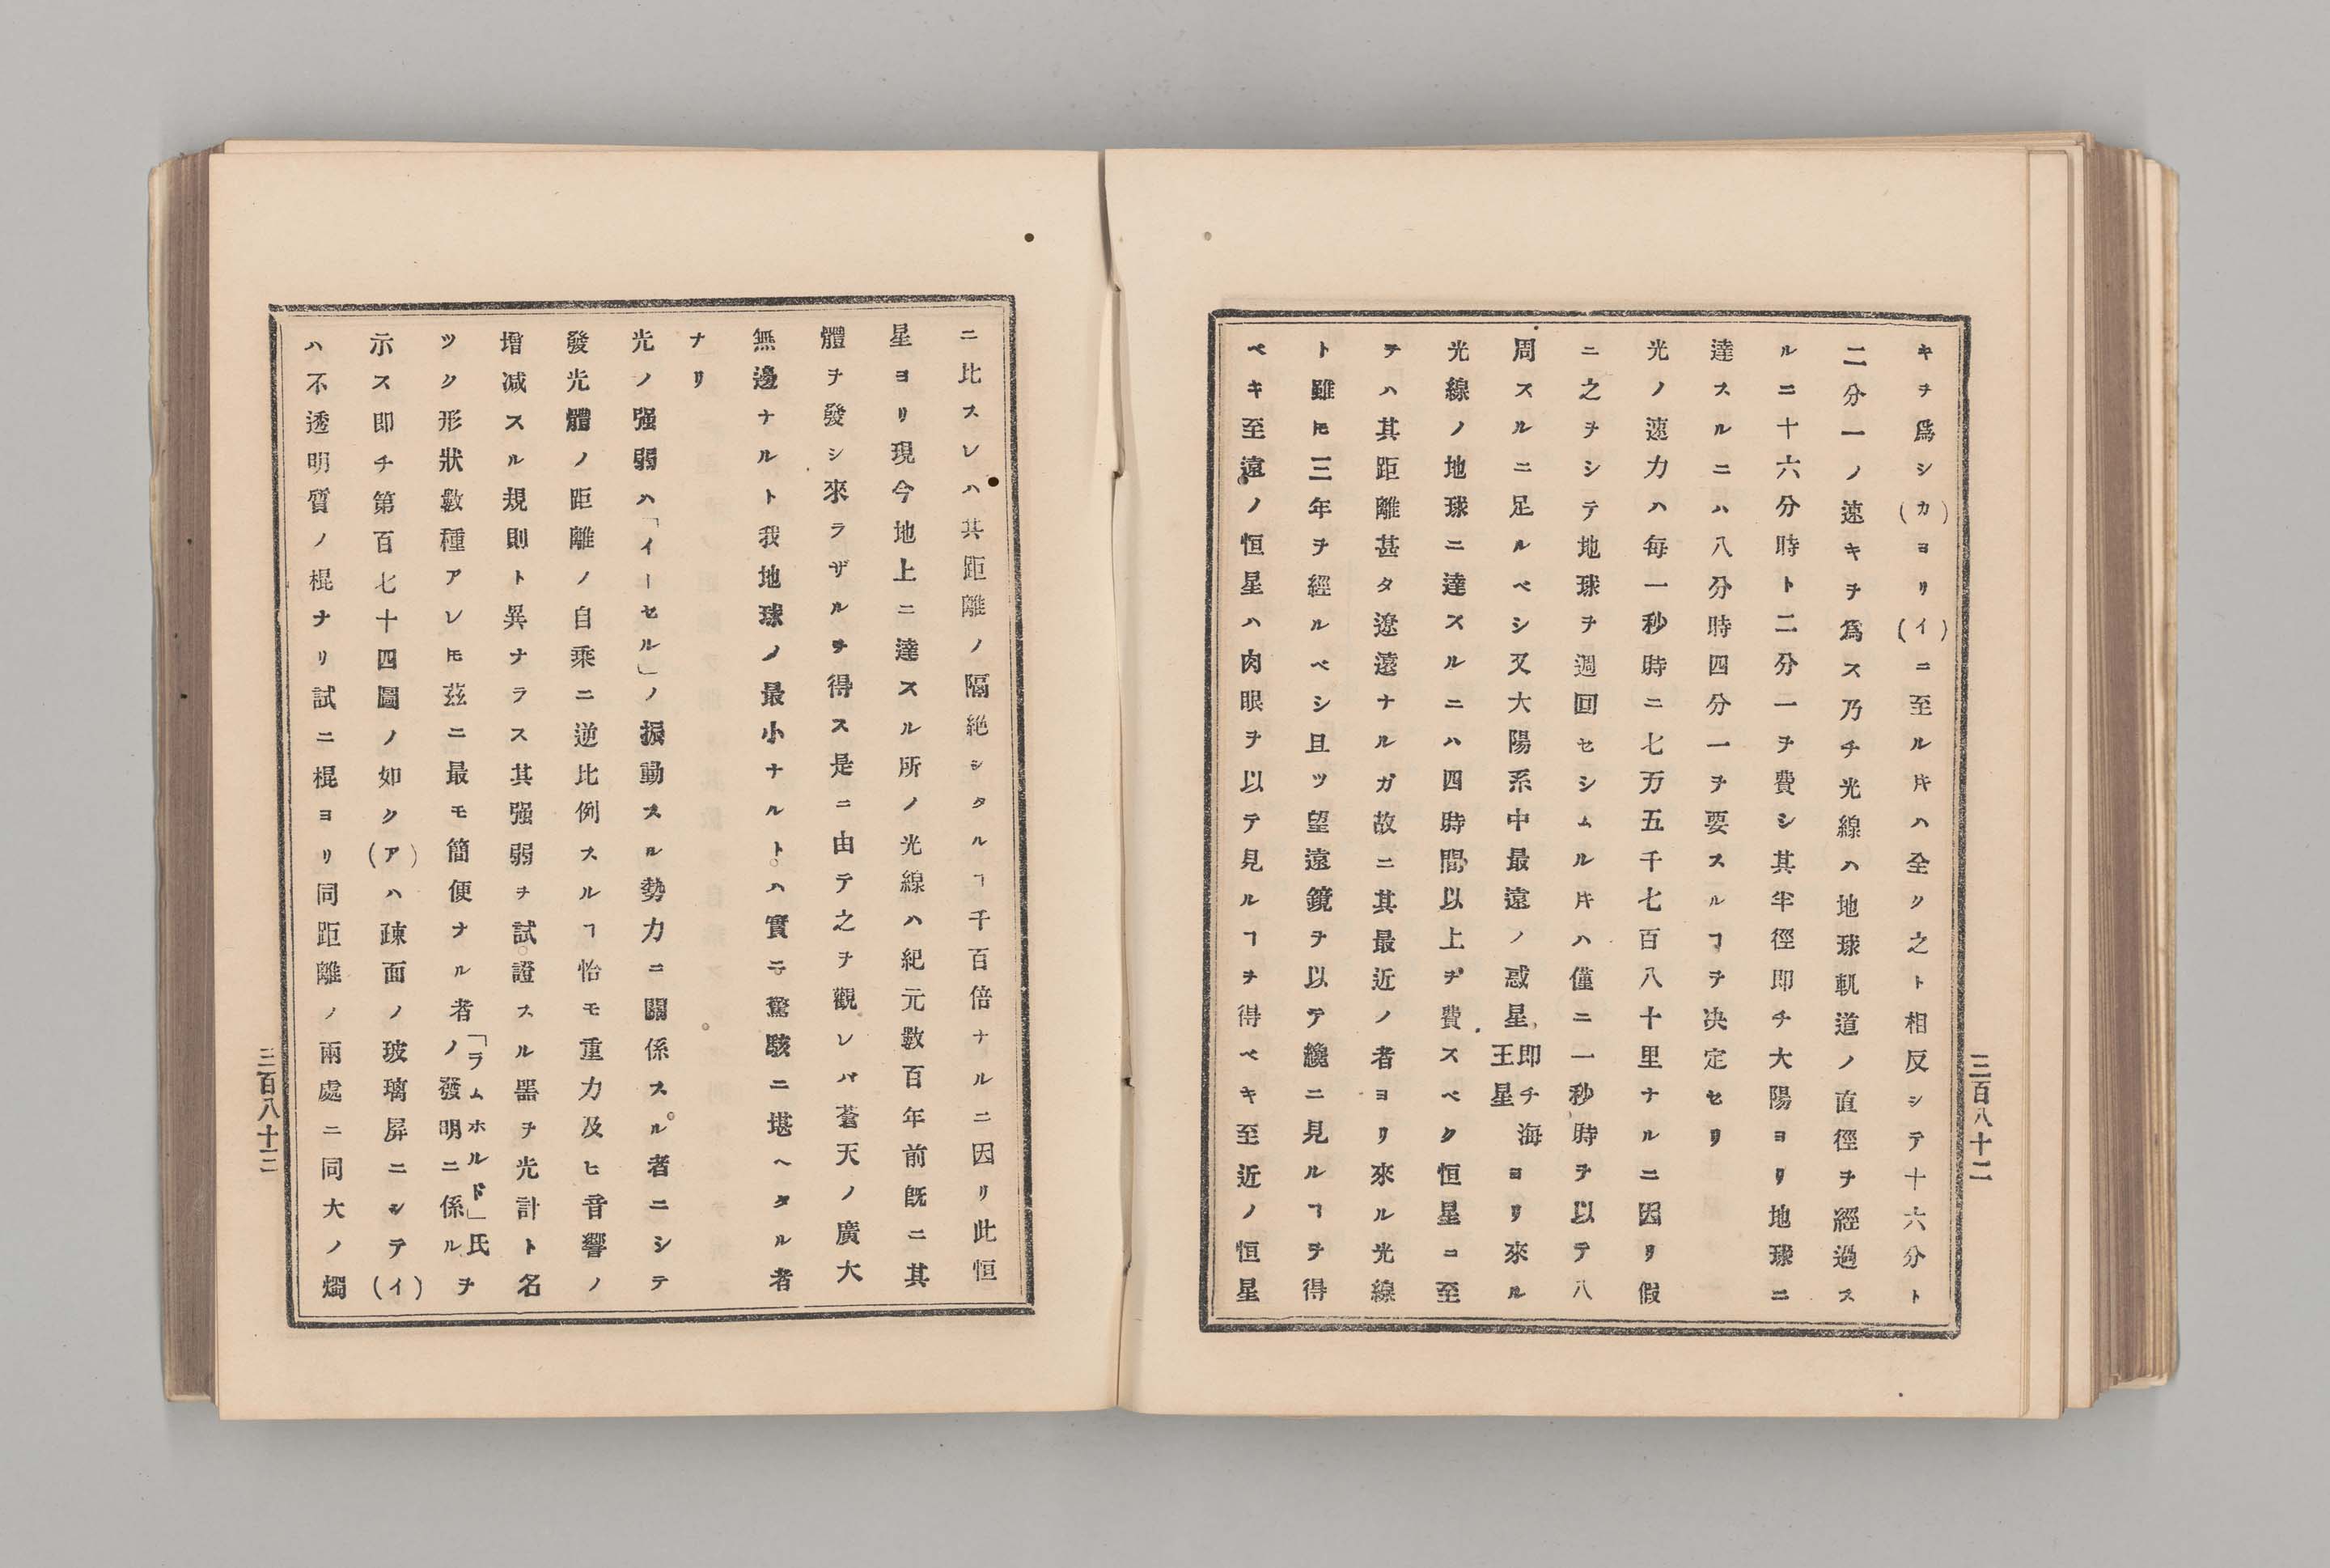 キヲ爲シ(カ)ヨリ(イ)ニ至ルㇰハ全ク之ト相反シテ十六分ト
二分一ノ速キヲ爲ス乃チ光線ハ地球軌道ノ直徑ヲ經過ス
ルニ十六分時ト二分一ヲ費シ其半徑即チ大陽ヨリ地球ニ
達スルニハ八分時四分一ヲ要スルヿヲ决定セリ
光ノ速力ハ毎一秒時ニ七万五千七百八十里ナルニ因リ假
ニ之ヲシテ地球ヲ週回セシムル𪜈ハ僅ニ一秒時ヲ以テ八
周スルニ足ルベシ又大陽系中最遠ノ惑星即チ海王星ヨリ來ル
光線ノ地球ニ達スルニハ四時間以上ヲ費スベク恒星ニ至
テハ其距離甚タ遼遠ナルガ故ニ其最近ノ者ヨリ來ル光線
ト雖𪜈三年ヲ經ルベシ且ツ望遠鏡ヲ以テ纔ニ見ルヿヲ得
ベキ至遠ノ恒星ハ肉眼ヲ以テ見ルヿヲ得ベキ至近ノ恒星
三百八十二
ニ比スレハ其距離ノ隔絶シタルヿ千百倍ナルニ因リ此恒
星ヨリ現今地上ニ達スル所ノ光線ハ紀元數百年前既ニ其
體ヲ發シ來ラザルヲ得ス是ニ由テ之ヲ觀レバ蒼天ノ廣大
無邊ナルト我地球ノ最小ナルトハ實ニ驚駭ニ堪ヘタル者
ナリ
光ノ强弱ハ「イーセル」ノ振動スル勢力ニ關係スル者ニシテ
發光體ノ距離ノ自乘ニ逆比例スルヿ恰モ重力及ヒ音響ノ
增减スル規則ト異ナラス其强弱ヲ試證スル噐ヲ光計ト名
ツク形狀數種アレ𪜈茲ニ最モ簡便ナル者「ラムホルド」氏ノ發明ニ係ルヲ
示ス即チ第百七十四圖ノ如ク(ア)ハ疎面ノ玻璃屏ニシテ(イ)
ハ不透明質ノ棍ナリ試ニ棍ヨリ同距離ノ兩處ニ同大ノ燭
三百八十三